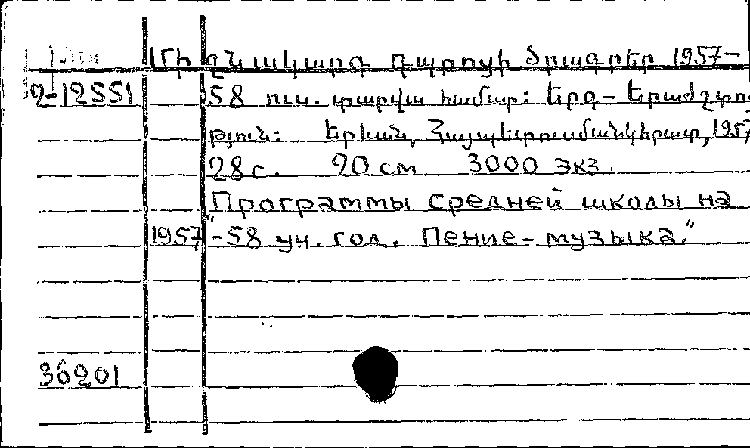 Միջնակարգ դպրոցի ծրագրեր 1957–
2-12551 58 ուս. տարվա համար: Երգ – Երաժշտու
թյուն: Երևան, Հայպետուսմանկհրատ, 1957
28 с. 20 см 3000 экз.
"Программы средней школы на
1957-58 уч. год. Пение-музыка."
36201